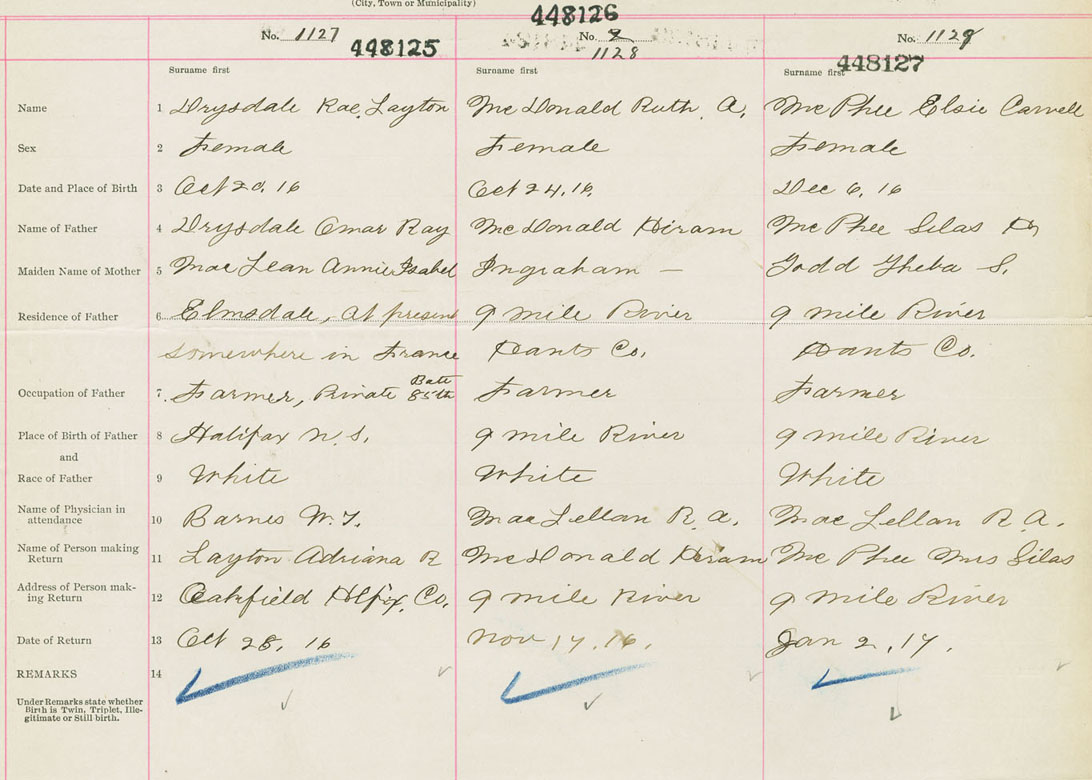 (City, Town or Municipality)
448126
No. 1127 448125 No. 2 No. 1129
1128 448127
Surname first Surname first Surname first
Name 1 Drysdale Rae, Layton McDonald Ruth A. McPhee Elsie Carvell
Sex 2 Female Female Female
Date and Place of Birth 3 Oct 20, 16 Oct 24, 16 Dec 6, 16
Name of Father 4 Drysdale Omar Ray McDonald Hiram McPhee Silas H
Maiden Name of Mother 5 MacLean Annie Isabel Ingraham — Todd Theba S.
Residence of Father 6 Elmsdale, at present 9 mile River 9 mile River
somewhere in France Hants Co. Hants Co.
Occupation of Father 7 Farmer, Private Batt 85th Farmer Farmer
Place of Birth of Father 8 Halifax N.S. 9 mile River 9 mile River
and
Race of Father 9 White White White
Name of Physician in
attendance 10 Barnes W.T. MacLellan R.A. MacLellan R A.
Name of Person making
Return 11 Layton Adriana R McDonald Hiram McPhee Mrs Silas
Address of Person mak-
ing Return 12 Oakfield Hlfx. Co. 9 mile River 9 mile River
Date of Return 13 Oct 28, 16 Nov 17, 16. Jan 2, 17.
REMARKS 14
Under Remarks state whether
Birth is Twin, Triplet, Ille-
gitimate or Still birth.